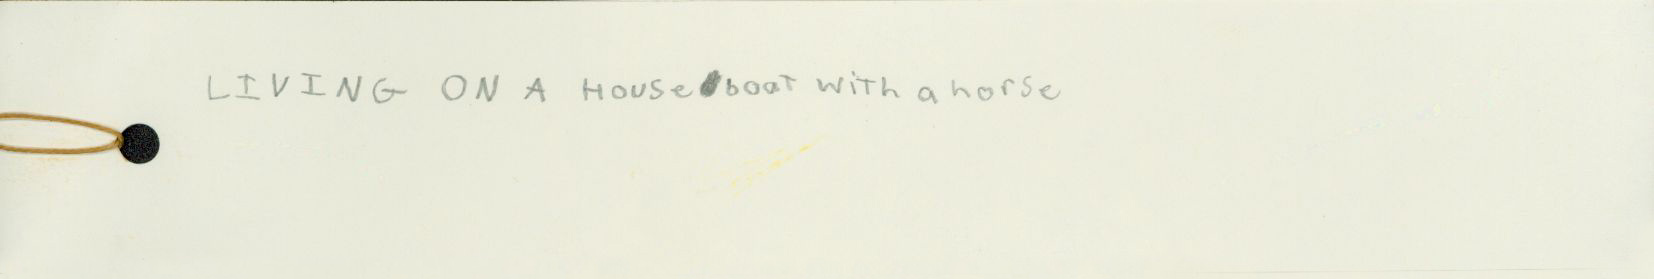 LIVING ON A HOUSeboat with a horse